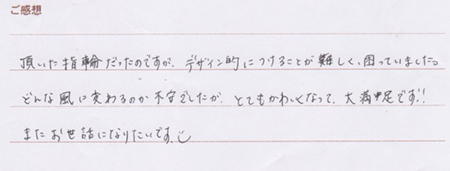 ご感想
頂いた指輪だったのですが、デザイン的につけることが難しく、困っていました。
どんな風に変わるのか不安でしたが、とてもかわいくなって、大満足です!!
またお世話になりたいです。